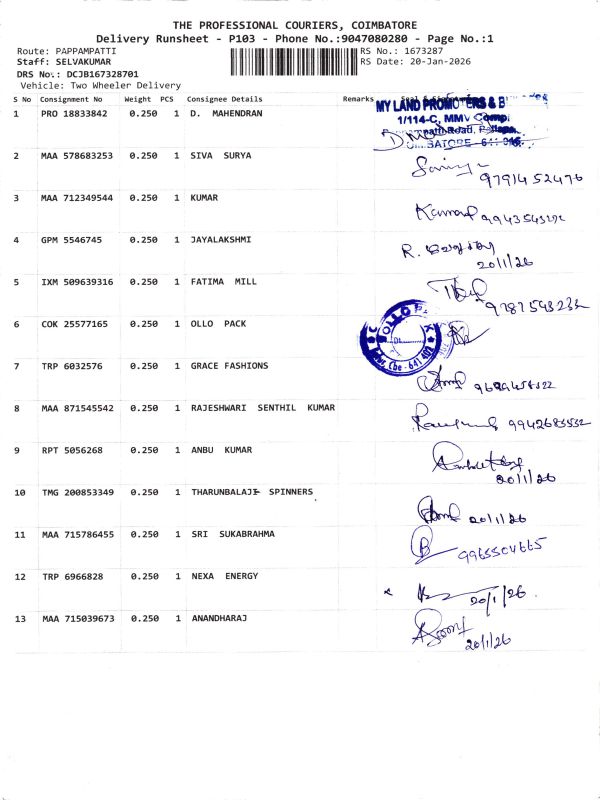 THE PROFESSIONAL COURIERS, COIMBATORE
Delivery Runsheet - P103 - Phone No.:9047080280 - Page No.:1
Route: PAPPAMPATTI
RS No.: 1673287
Staff: SELVAKUMAR
RS Date: 20-Jan-2026
DRS No.: DCJB167328701
Vehicle: Two Wheeler Delivery
S No Consignment No Weight PCS Consignee Details Remarks
MY LAND PROMOTERS & B
1 PRO 18833842 0.250 1 D. MAHENDRAN
1/114-C, MMV Comp
2 MAA 578683253 0.250 1 SIVA SURYA
9791452476
3 MAA 712349544 0.250 1 KUMAR
Kumar
4 GPM 5546745 0.250 1 JAYALAKSHMI
20/1/26
5 IXM 509639316 0.250 1 FATIMA MILL
9787543232
6 COK 25577165 0.250 1 OLLO PACK
OLLO PA K
Cbe - 641 402
7 TRP 6032576 0.250 1 GRACE FASHIONS
8 MAA 871545542 0.250 1 RAJESHWARI SENTHIL KUMAR
9 RPT 5056268 0.250 1 ANBU KUMAR
20/1/26
10 TMG 200853349 0.250 1 THARUNBALAJI SPINNERS
20/1/26
11 MAA 715786455 0.250 1 SRI SUKABRAHMA
9965504665
12 TRP 6966828 0.250 1 NEXA ENERGY
20/1/26.
13 MAA 715039673 0.250 1 ANANDHARAJ
20/1/26